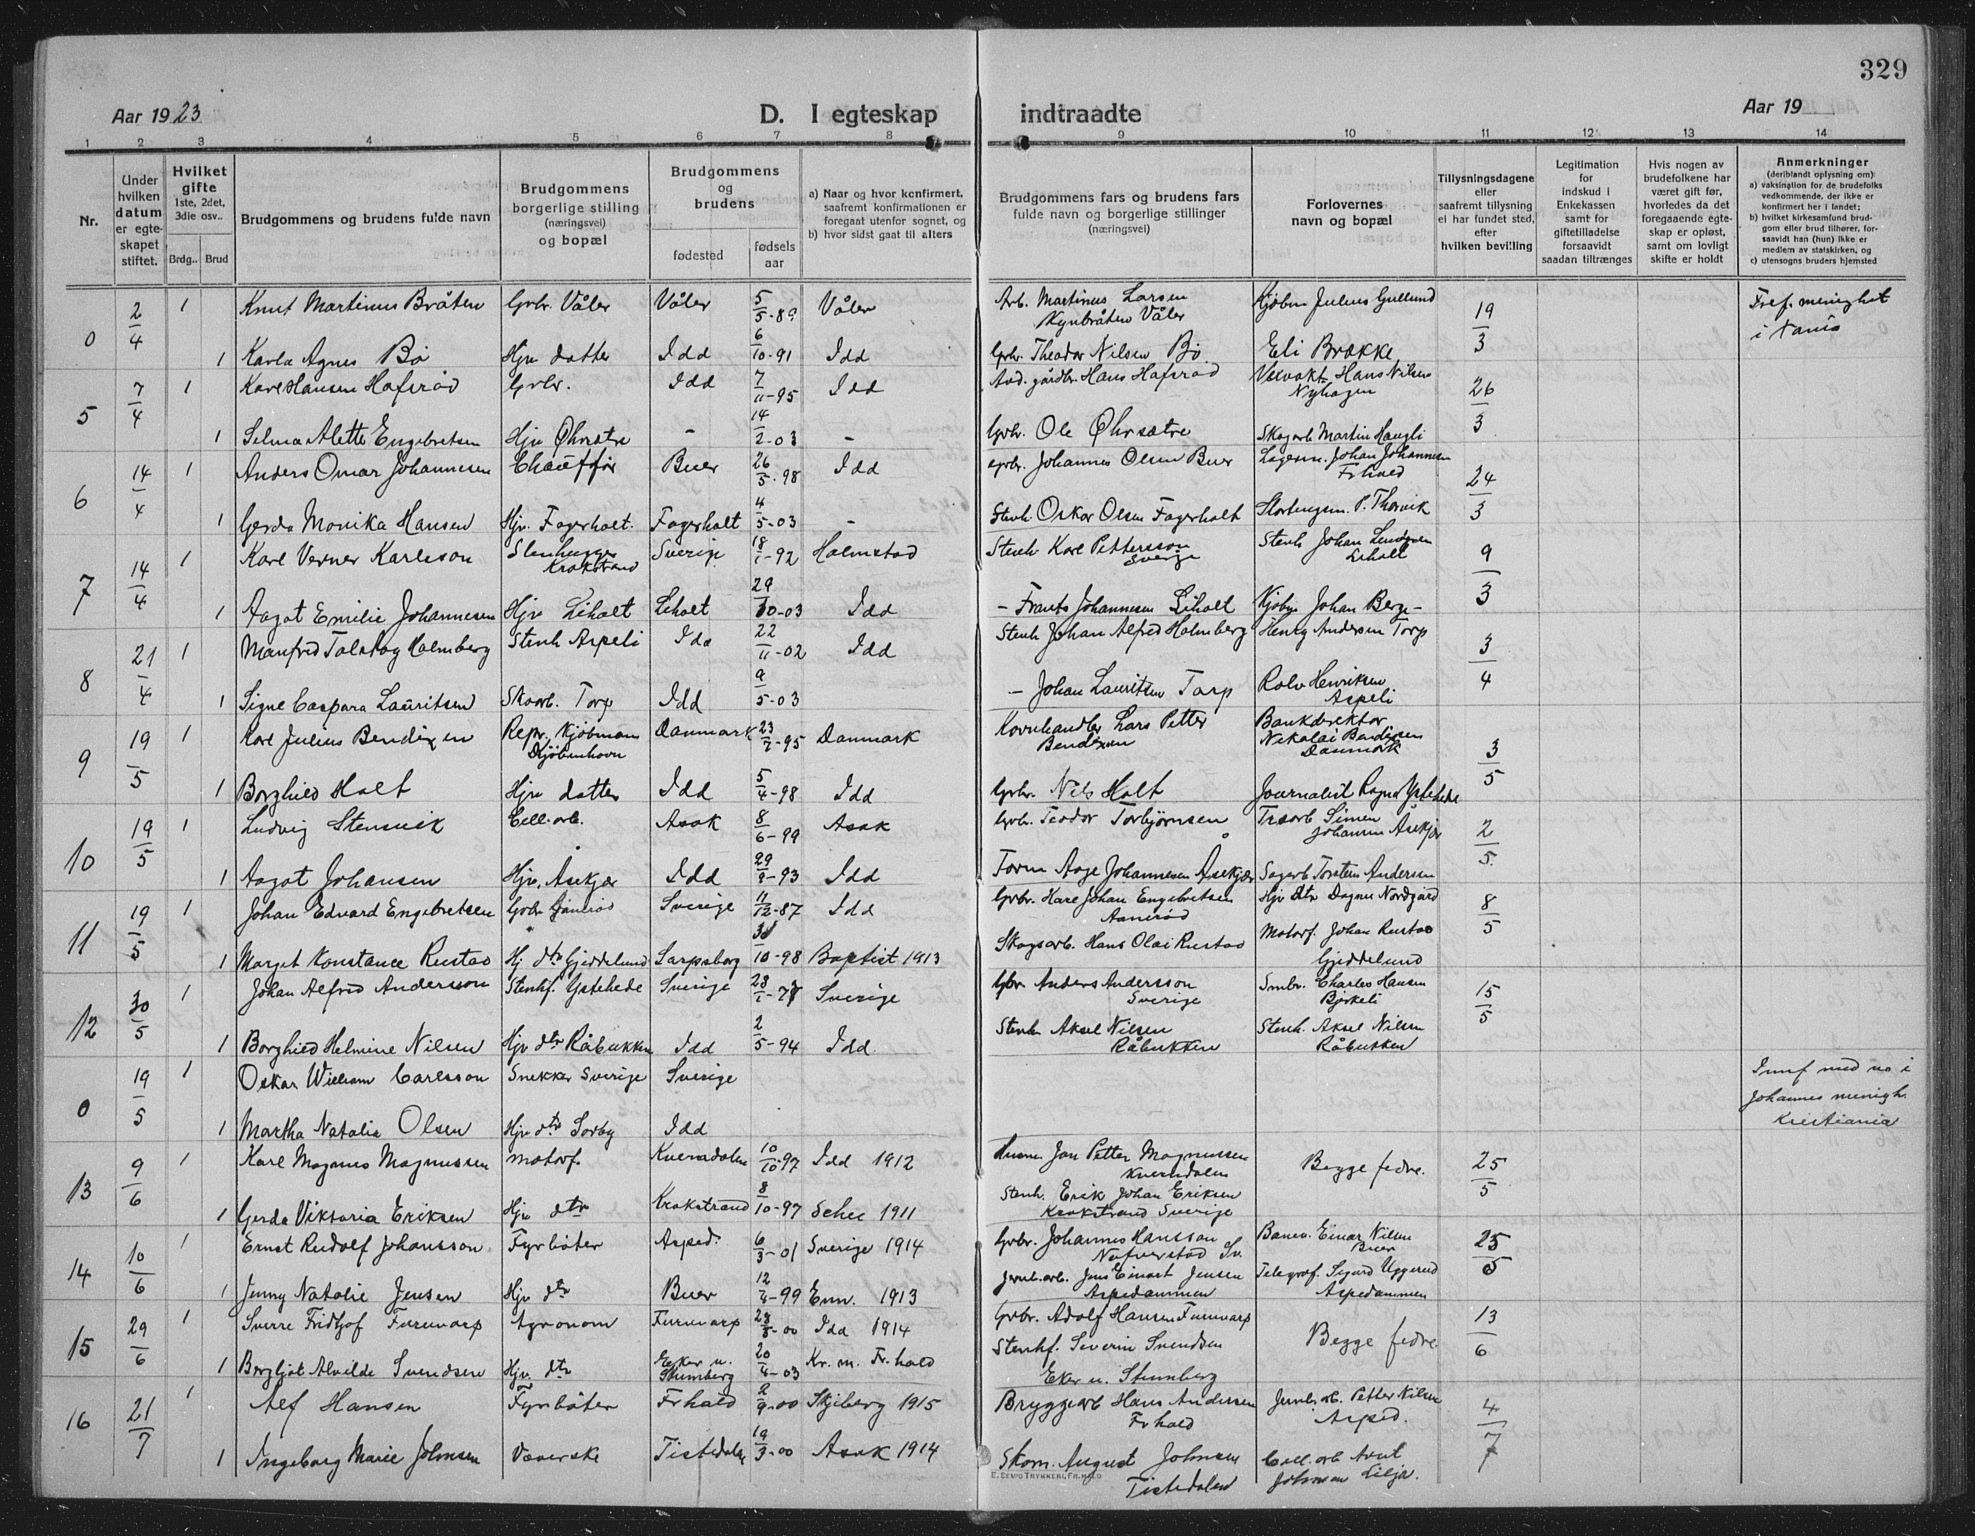 329
Aar 1923
D. I egteskap
indtraadte
Aar 19
1 2 3 4 5 6 7 8 9 10 11 12 13 14
Nr.
Under hvilken datum er egteskapet stiftet.
Hvilket gifte 1ste, 2det, 3die osv..
Brdg..
Brud
Brudgommens og brudens fulde navn
Brudgommens borgerlige stilling (næringsvei) og bopæl
Brudgommens og brudens
fødested
fødselsaar
a) Naar og hvor konfirmert, saafremt konfirmationen er foregaat utenfor sognet, og
b) hvor sidst gaat til alters
Brudgommens fars og brudens fars fulde navn og borgerlige stillinger (næringsvei)
Forlovernes navn og bopæl
Tillysningsdagene eller saafremt tillysning ei har fundet sted, efter hvilken bevilling
Legitimation for indskud i Enkekassen samt for giftetilladelse forsaavidt saadan tiltrænges
Hvis nogen av brudefolkene har været gift før, hvorledes da det foregaaende egteskap er opløst, samt om lovligt skifte er holdt
Anmerkninger
(deriblandt oplysning om):
a) vaksination for de brudefolks vedkommende, der ikke er konfirmert her i landet;
b) hvilket kirkesamfund brudgom eller brud tilhører, forsaavidt han (hun) ikke er medlem av statskirken, og
c) utensogns bruders hjemsted
0 2/4 1 Knut Martinus Bråten Grbr. Våler Våler 5/5-89 Våler Arb. Martinus Larsen Våler Kjøbm Julius Gullund 19/3 i Paris
1 Karla Agnes Bø Hjv datter Idd 6/10-91 Idd Grbr. Theodor Nilsen Bø Eli Brække
5 7/4 1 Karl Hansen Hafsrød Grbr. Idd 7/11-95 Idd Avd. gårdbr. Hans Hafsrød Hans Nilsen Nyhagen 26/3
1 Selma Alette Engebretsen Hjv Øhrsætre - 14/2-03 - Grbr. Ole Øhrsætre Skogarb Martin Haugli
6 14/4 1 Anders Omar Johannesen Chauffør Buer 26/5-98 Idd Grbr. Johannes Olsen Buer Johan Johannesen Frhald 24/3
1 Gerda Monika Hansen Hjv. Fagerholt. Fagerholt 4/5-03 - Stenh Oskar Olsen Fagerholt Stortingsm. P. Thorvik
7 14/4 1 Karl Verner Karlsson Stenhugger Krokstrand Sverige 18/1-92 Halmstad Stenh Karl Pettersson Sverge Stenh Johan Liholt 9/3
1 Aagot Emilie Johannesen Hjv Liholt Liholt 29/10-03 Idd - Frants Johannesen Liholt Kjøbm Johan Berge-
8 21/4 1 Manfred Holmberg Stenh Aspeli Idd 22/11-02 Idd Stenh Johan Alfred Holmberg Henry Andersen Torp 3/4
1 Signe Caspara Lauritsen Skoarb. Torp Idd 9/5-03 - Johan Lauritsen Torp Rolv Henriksen Aspeli
9 19/5 1 Karl Julius Bendixen Repr. Kjøbmann Kjøbenhavn Danmark 23/7-95 Danmark Kornhandler Lars Petter Bendixen Bankdirektør Nikolai Bendixen Danmark 3/5
1 Borghild Holt Hjv datter Idd 5/4-98 Idd Grbr. Nils Holt Journalist Ragna Ystehede
10 19/5 1 Ludvig Stensvik Cell.arb. Asak 8/6-99 Asak Grbr. Teodor Torbjørnsen Træarb Simen Johansen Asekjær 2/5
1 Aagot Johansen Hjv. Asekjær Idd 29/9-93 Idd Form Aage Johannesen Åsekjær Sagarb Torstein Andersen
11 19/5 1 Johan Edvard Engebretsen Grbr Sverige 11/12-87 Idd Grbr. Johan Engebretsen Hjv dtr Dagny Nordgård 8/5
1 Margit Konstance Rustad Hj dtr Gjeddelund Sarpsborg 10-98 Baptist 1913 Skogsarb. Hans Olai Rustad Motorf. Johan Rustad Gjeddelund
12 30/5 1 Johan Alfred Andersson Stenhf. Ystehede Sverige 28/1 Sverige Gbr Anders Andersson Sverige Smbr. Charles Hansen Bjørkeli 15/5
1 Borghild Helmine Nilsen Hjv dtr Råbukken Idd 2/5-94 Idd. Stenh Aksel Nilsen Råbukken Stenh. Aksel Nilsen Råbukken
0 19/5 1 Oskar William Carlsson Snekker Sverige Sverige Innf med no i Johannes menigh. Kristiania
1 Martha Natalia Olsen Hjv dtr Sorby Idd
13 9/6 1 Karl Magnus Magnussen Motorf. Kversdalen 10/10-97 Idd 1912 Husm. Jan Petter Magnussen Begge fedre. 25/5
1 Gerda Viktoria Eriksen Hjv dtr Krokstrand 8/10-97 1911 Stenh. Erik Johan Eriksen Krokstrand Sverige
14 10/6 1 Ernst Rudolf Johansson Fyrbøter Asped. 6/3-01 Sverige 1914 Grbr. Johannes Hansson Nafverstad Sv. Banev. Einar Nilsen Buer 25/5
1 Jenny Natalie Jensen Hjv dtr Buer 12/4-99 Enn. 1913 Jernb.arb. Jens Einart Jensen Aspedammen Telegraf. Sigurd Uggerud Aspedammen
15 29/6 1 Sverre Fridtjof Furuvarp Agronom Furuvarp 28/8-00 Idd 1914 Grbr. Adolf Hansen Furuvarp Begge fedre. 13/6
1 Bergljot Alvilde Svendsen Hjv. dtr Eker u. Stumberg 20/4-03 Kr. m. Fr.hald Stenhf. Severin Svendsen Eker u. Stumberg
16 21/7 1 Alf Hansen Fyrbøter Frhald 2/9-00 Skjeberg 1915 Bryggearb Hans Andersen Frhald Jernb. arb. Petter Nilsen Asped. 4/7
1 Ingeborg Marie Johnsen Væverske Tistedalen 19/3-00 Asak 1914 Skom. August Johnsen Tistedalen Cell.arb Arnt Johnsen Lilja.
E. SEMS TRYKKERI, FR.HALD